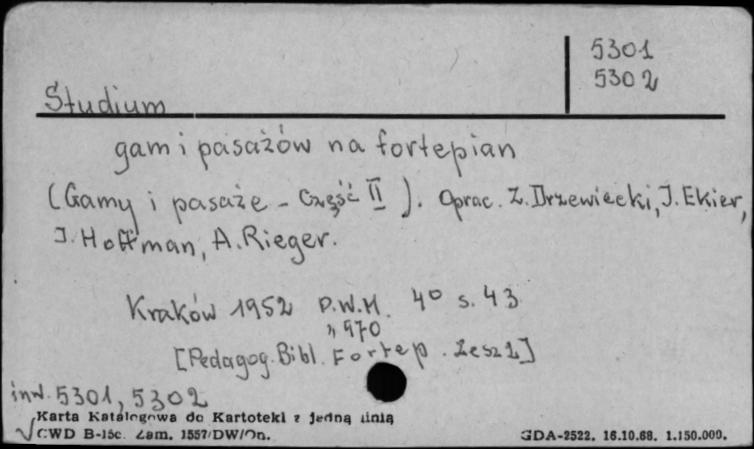 5301
5302
Studium
gam i pasażów na fortepian
(Gamy i pasaże - Część II). Oprac. Z. Drzewiecki, J. Ekier,
J. Hoffman, A. Rieger.
Kraków 1952 P.W.M. 4° s. 43
970
[Pedagog. Bibl. Fortep. Zesz 2]
inw. 5301, 5302
Karta Katalogowa do Kartoteki z jedną linią
CWD B-15c. Zam. 1557/DW/On.
GDA-2522. 16.10.68. 1.150.000.